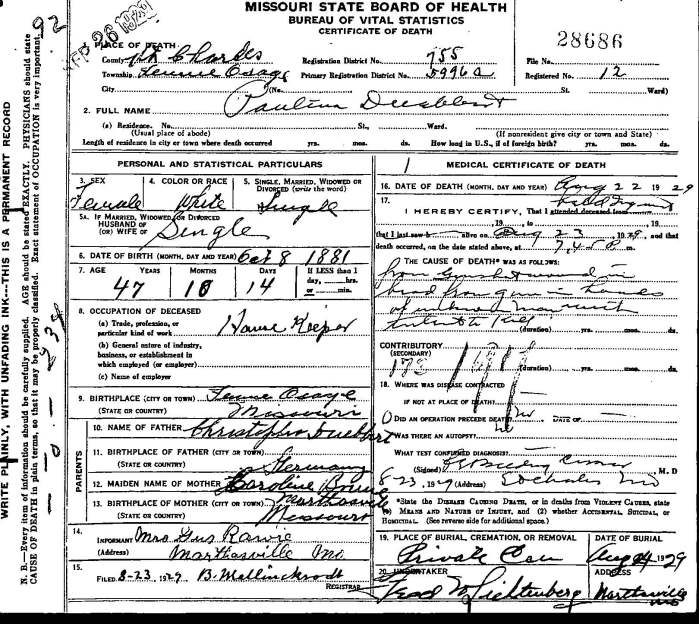 MISSOURI STATE BOARD OF HEALTH
BUREAU OF VITAL STATISTICS
CERTIFICATE OF DEATH
28686
1. PLACE OF DEATH
County St Charles Registration District No. 755 File No.
Township Femme Osage Primary Registration District No. 5996a Registered No. 12
City (No. St. Ward)
2. FULL NAME Paulina Duebbert
(a) Residence. No. St., Ward.
(Usual place of abode) (If nonresident give city or town and State)
Length of residence in city or town where death occurred yrs. mos. ds. How long in U.S., if of foreign birth? yrs. mos. ds.
PERSONAL AND STATISTICAL PARTICULARS
3. SEX 4. COLOR OR RACE 5. SINGLE, MARRIED, WIDOWED OR
DIVORCED (write the word)
Female White Single
5A. IF MARRIED, WIDOWED OR DIVORCED
HUSBAND OF
(OR) WIFE OF Single
6. DATE OF BIRTH (MONTH, DAY AND YEAR) Oct 8 1881
7. AGE YEARS MONTHS DAYS If LESS than 1
day, hrs.
or min.
47 10 14
8. OCCUPATION OF DECEASED
(a) Trade, profession, or
particular kind of work House Keeper
(b) General nature of industry,
business, or establishment in
which employed (or employer)
(c) Name of employer
9. BIRTHPLACE (CITY OR TOWN) Femme Osage
(STATE OR COUNTRY) Missouri
PARENTS
10. NAME OF FATHER Christopher Duebbert
11. BIRTHPLACE OF FATHER (CITY OR TOWN)
(STATE OR COUNTRY) Germany
12. MAIDEN NAME OF MOTHER Caroline
13. BIRTHPLACE OF MOTHER (CITY OR TOWN) Marthasville
(STATE OR COUNTRY) Missouri
14.
INFORMANT Mrs Gus Rawie
(Address) Marthasville Mo
15.
FILED 8-23, 1929 B. Mallinckrodt
REGISTRAR
MEDICAL CERTIFICATE OF DEATH
16. DATE OF DEATH (MONTH, DAY AND YEAR) Aug 22 1929
17.
I HEREBY CERTIFY, That I attended deceased from
, 19 , to , 19
that I last saw h alive on Aug 23, 1929, and that
death occurred, on the date stated above, at 7,45 P m.
THE CAUSE OF DEATH* WAS AS FOLLOWS:
from Gunshot wound in
head from gun in hands
of
(duration) yrs. mos. ds.
CONTRIBUTORY
(SECONDARY)
173
(duration) yrs. mos. ds.
18. WHERE WAS DISEASE CONTRACTED
IF NOT AT PLACE OF DEATH?
DID AN OPERATION PRECEDE DEATH? no DATE OF
WAS THERE AN AUTOPSY? no
WHAT TEST CONFIRMED DIAGNOSIS?
(Signed) M. D
8-23, 1929 (Address) St Charles Mo
*State the DISEASE CAUSING DEATH, or in deaths from VIOLENT CAUSES, state
(1) MEANS AND NATURE OF INJURY, and (2) whether ACCIDENTAL, SUICIDAL, or
HOMICIDAL. (See reverse side for additional space.)
19. PLACE OF BURIAL, CREMATION, OR REMOVAL DATE OF BURIAL
Private Cem Aug 24 1929
20. UNDERTAKER ADDRESS
Fred W Lichtenberg Marthasville
Mo
WRITE PLAINLY, WITH UNFADING INK---THIS IS A PERMANENT RECORD
N. B.—Every item of information should be carefully supplied. AGE should be stated EXACTLY. PHYSICIANS should state
CAUSE OF DEATH in plain terms, so that it may be properly classified. Exact statement of OCCUPATION is very important.